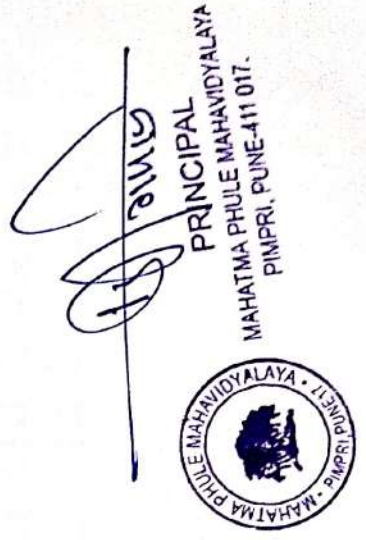 PRINCIPAL
MAHATMA PHULE MAHAVIDYALAYA
PIMPRI, PUNE-411 017.
MAHATMA PHULE MAHAVIDYALAYA • PIMPRI PUNE 17 •